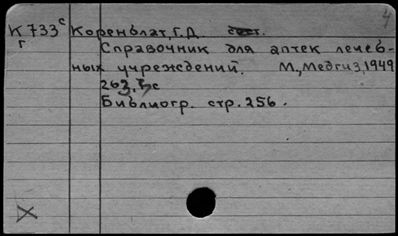 4
К 733 с Коренблат, Г.Д. сост.
г Справочник для аптек лечеб-
ных учреждений. М., Медгиз, 1949
263, с
Библиогр. стр. 256.